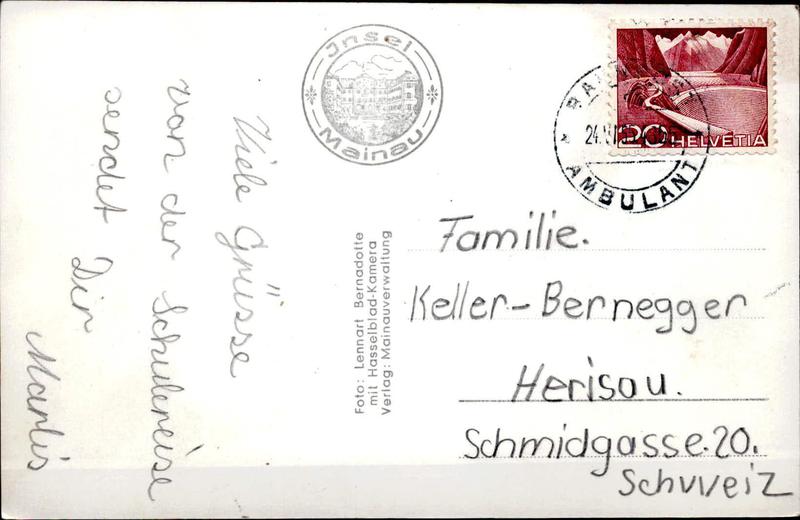 Insel
Mainau
Viele Grüsse
von der Schulreise
sendet Dir
Marlis
Foto: Lennart Bernadotte
mit Hasselblad-Kamera
Verlag: Mainauverwaltung
AMBULANT
20 HELVETIA
Familie.
Keller-Bernegger
Herisau.
Schmidgasse.20.
Schweiz